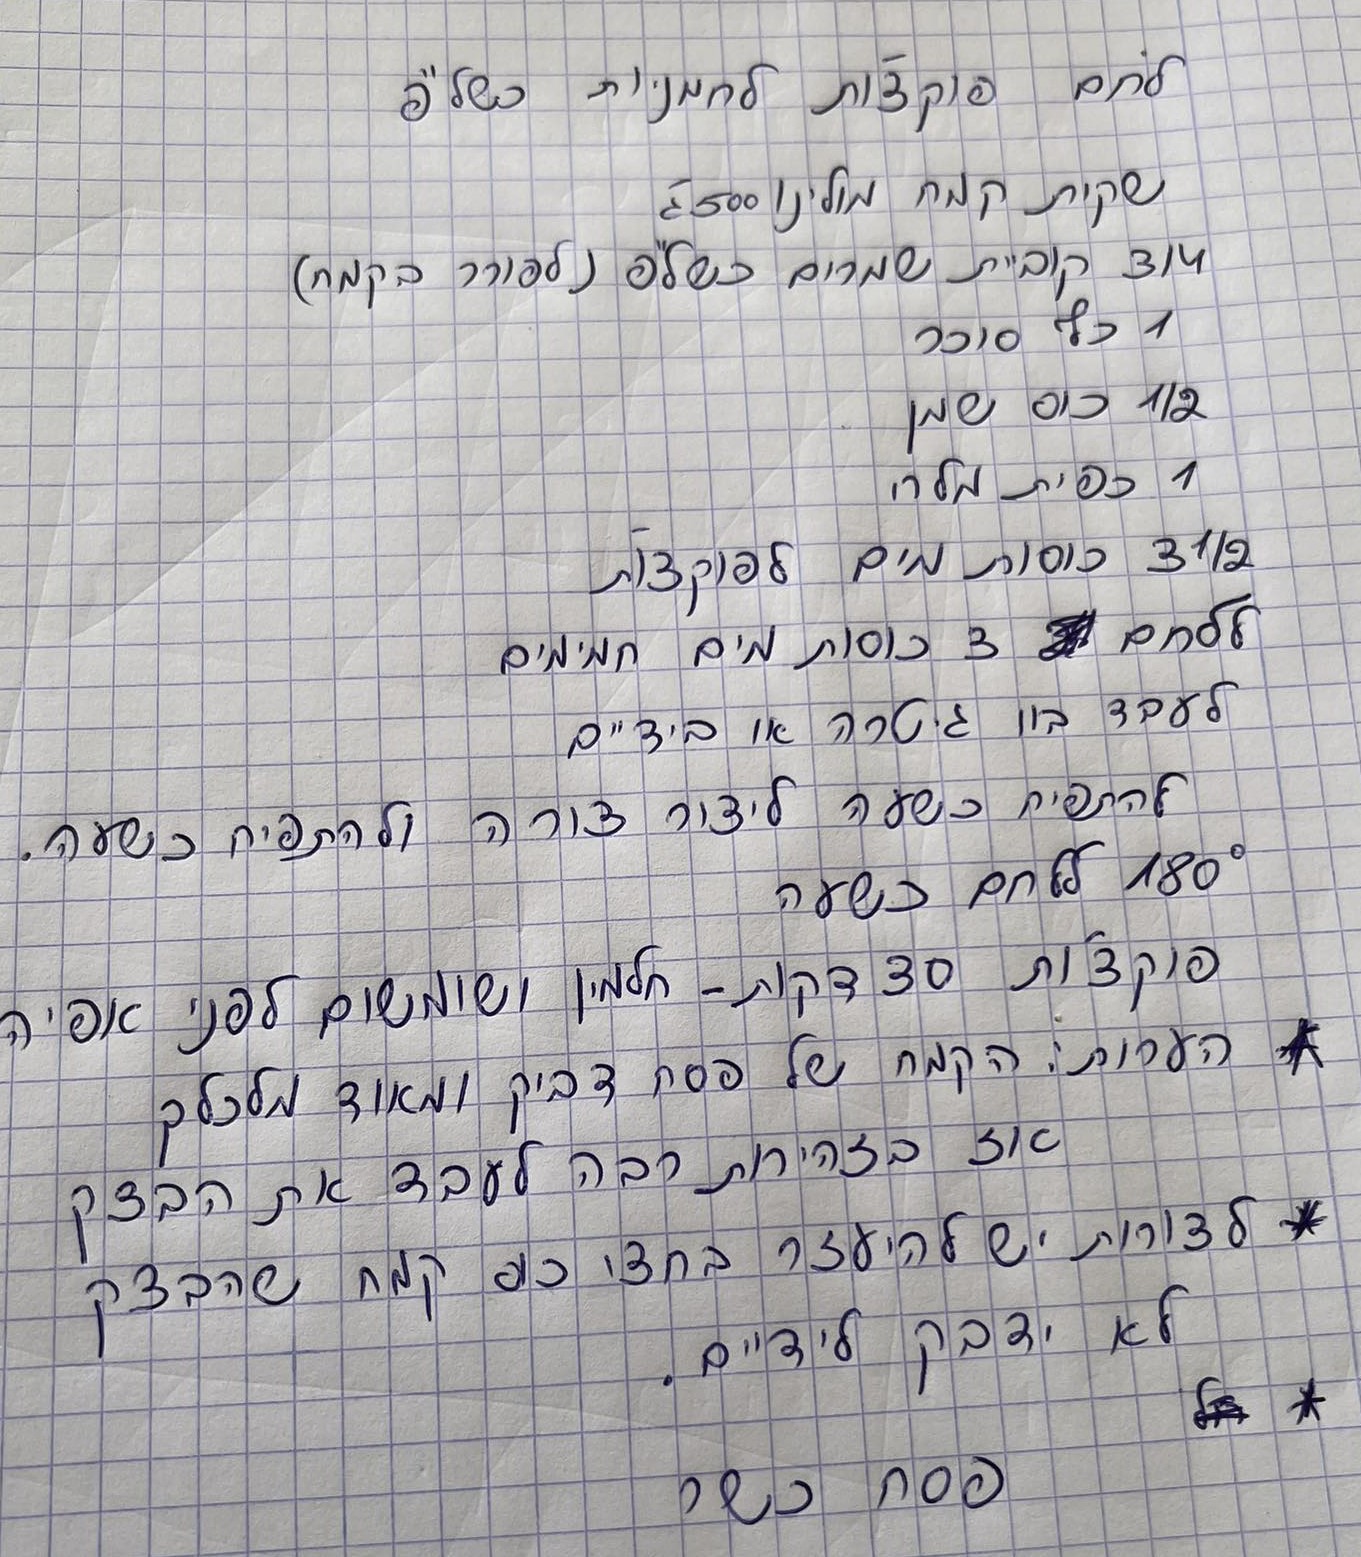 לחם פוקצ'ות לחמניות כשל"פ
שקית קמח מולינו 500 ג'
3/4 קוביית שמרים כשל"פ (לפורר בקמח)
1 כף סוכר
1/2 כוס שמן
1 כפית מלח
3 1/2 כוסות מים לפוקצ'ות
ללחם 3 כוסות מים חמימים
לעבד בוו גיטרה או בידיים
להתפיח כשעה ליצור צורה ולהתפיח כשעה.
180° ללחם כשעה
פוקצ'ות 30 דקות - חלמון ושומשום לפני אפיה
* הערות: הקמח של פסח דביק ומאוד מלכלך
אוז בזהירות רבה לעבד את הבצק
* לצורות יש להיעזר בחצי כוס קמח שהבצק
לא ידבק לידיים.
*
פסח כשר